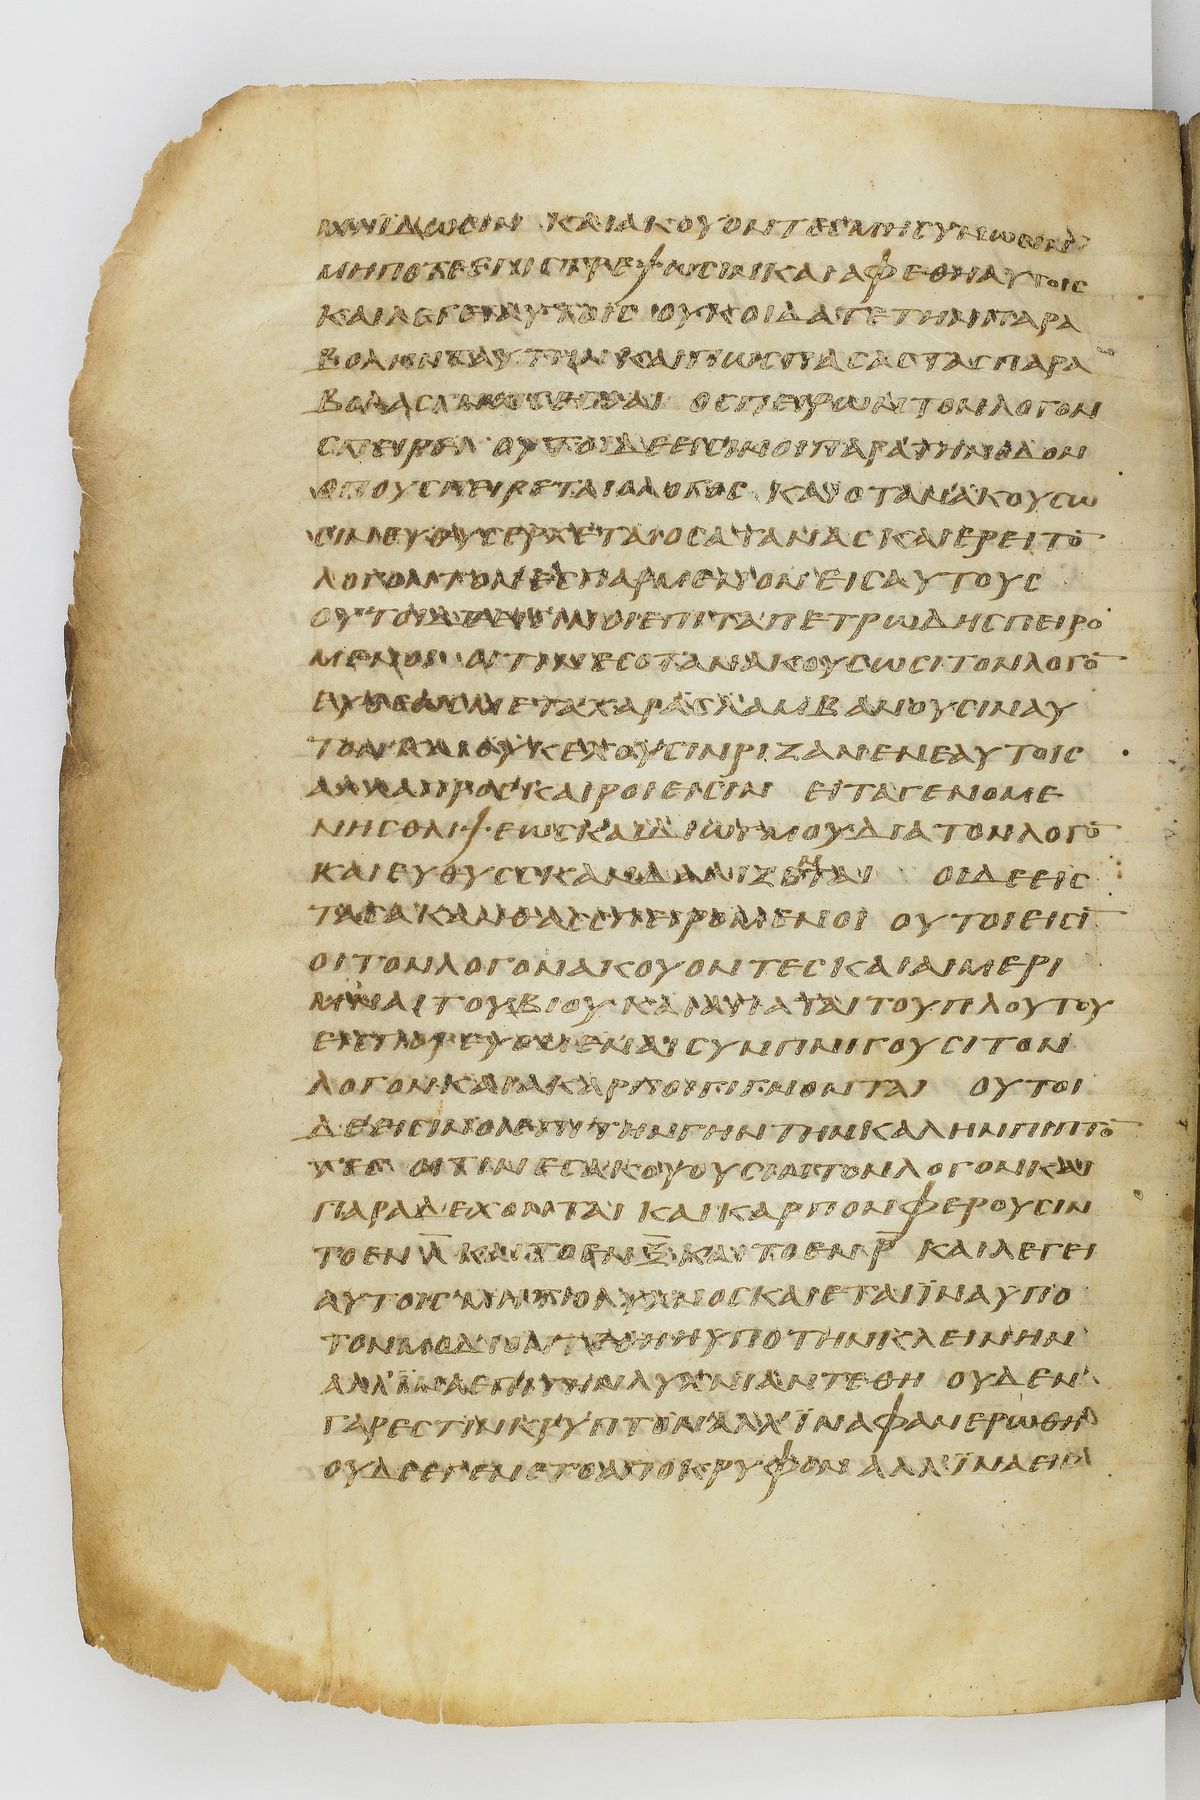 ΜΗΪΔΩϹΙΝ ΚΑΙΑΚΟΥΟΝΤΕϹΜΗϹΥΝΙΩϹΙΝ
ΜΗΠΟΤΕΕΠΙϹΤΡΕΨΩϹΙΝΚΑΙΑΦΕΘΗΑΥΤΟΙϹ
ΚΑΙΛΕΓΕΙΑΥΤΟΙϹ ΟΥΚΟΙΔΑΤΕΤΗΝΠΑΡΑ
ΒΟΛΗΝΤΑΥΤΗΝΚΑΙΠΩϹΠΑϹΑϹΤΑϹΠΑΡΑ
ΒΟΛΑϹΓΝΩϹΕϹΘΑΙ ΟϹΠΕΙΡΩΝΤΟΝΛΟΓΟΝ
ϹΠΕΙΡΕΙ ΟΥΤΟΙΔΕΕΙϹΙΝΟΙΠΑΡΑΤΗΝΟΔΟΝ
ΟΠΟΥϹΠΕΙΡΕΤΑΙΟΛΟΓΟϹ ΚΑΙΟΤΑΝΑΚΟΥϹΩ
ϹΙΝΕΥΘΥϹΕΡΧΕΤΑΙΟϹΑΤΑΝΑϹΚΑΙΕΡΕΙΤΟ̄
ΛΟΓΟΝΤΟΝΕϹΠΑΡΜΕΝΟΝΕΙϹΑΥΤΟΥϹ
ΟΥΤΟΙΔΕΕΙϹΙΝΟΙΕΠΙΤΑΠΕΤΡΩΔΗϹΠΕΙΡΟ
ΜΕΝΟΙ ΟΙΤΙΝΕϹΟΤΑΝΑΚΟΥϹΩϹΙΤΟΝΛΟΓΟ̄
ΕΥΘΕΩϹΜΕΤΑΧΑΡΑϹΛΑΜΒΑΝΟΥϹΙΝΑΥ
ΤΟΝΚΑΙΟΥΚΕΧΟΥϹΙΝΡΙΖΑΝΕΝΕΑΥΤΟΙϹ
ΑΛΛΑΠΡΟϹΚΑΙΡΟΙΕΙϹΙΝ ΕΙΤΑΓΕΝΟΜΕ
ΝΗϹΘΛΙΨΕΩϹΚΑΙΔΙΩΓΜΟΥΔΙΑΤΟΝΛΟΓΟ̄
ΚΑΙΕΥΘΥϹϹΚΑΝΔΑΛΙΖΟΝΤΑΙ ΟΙΔΕΕΙϹ
ΤΑϹΑΚΑΝΘΑϹϹΠΕΙΡΟΜΕΝΟΙ ΟΥΤΟΙΕΙϹῙ
ΟΙΤΟΝΛΟΓΟΝΑΚΟΥΟΝΤΕϹΚΑΙΑΙΜΕΡΙ
ΜΝΑΙΤΟΥΒΙΟΥΚΑΙΑΠΑΤΑΙΤΟΥΠΛΟΥΤΟΥ
ΕΙϹΠΟΡΕΥΟΜΕΝΑΙϹΥΝΠΝΙΓΟΥϹΙΤΟΝ
ΛΟΓΟΝΚΑΙΑΚΑΡΠΟΙΓΙΝΟΝΤΑΙ ΟΥΤΟΙ
ΔΕΕΙϹΙΝΟΙΕΠΙΤΗΝΓΗΝΤΗΝΚΑΛΗΝΠΙΠΤΟ̄
ΤΕϹ ΟΙΤΙΝΕϹΑΚΟΥΟΥϹΙΝΤΟΝΛΟΓΟΝΚΑΙ
ΠΑΡΑΔΕΧΟΝΤΑΙ ΚΑΙΚΑΡΠΟΝΦΕΡΟΥϹΙΝ
ΤΟΕΝΛ̄ΚΑΙΤΟΕΝΞ̄ΚΑΙΤΟΕΝΡ̄ ΚΑΙΛΕΓΕΙ
ΑΥΤΟΙϹΜΗΤΙΟΛΥΧΝΟϹΚΑΙΕΤΑΙΪΝΑΥΠΟ
ΤΟΝΜΟΔΙΟΝΤΕΘΗΗΥΠΟΤΗΝΚΛΕΙΝΗΝ
ΑΛΛΪΝΑΕΠΙΤΗΝΛΥΧΝΙΑΝΤΕΘΗ ΟΥΔΕΝ
ΓΑΡΕϹΤΙΝΚΡΥΠΤΟΝΑΛΛΪΝΑΦΑΝΕΡΩΘΗ
ΟΥΔΕΕΓΕΝΕΤΟΑΠΟΚΡΥΦΟΝΑΛΛΪΝΑΕΙϹ